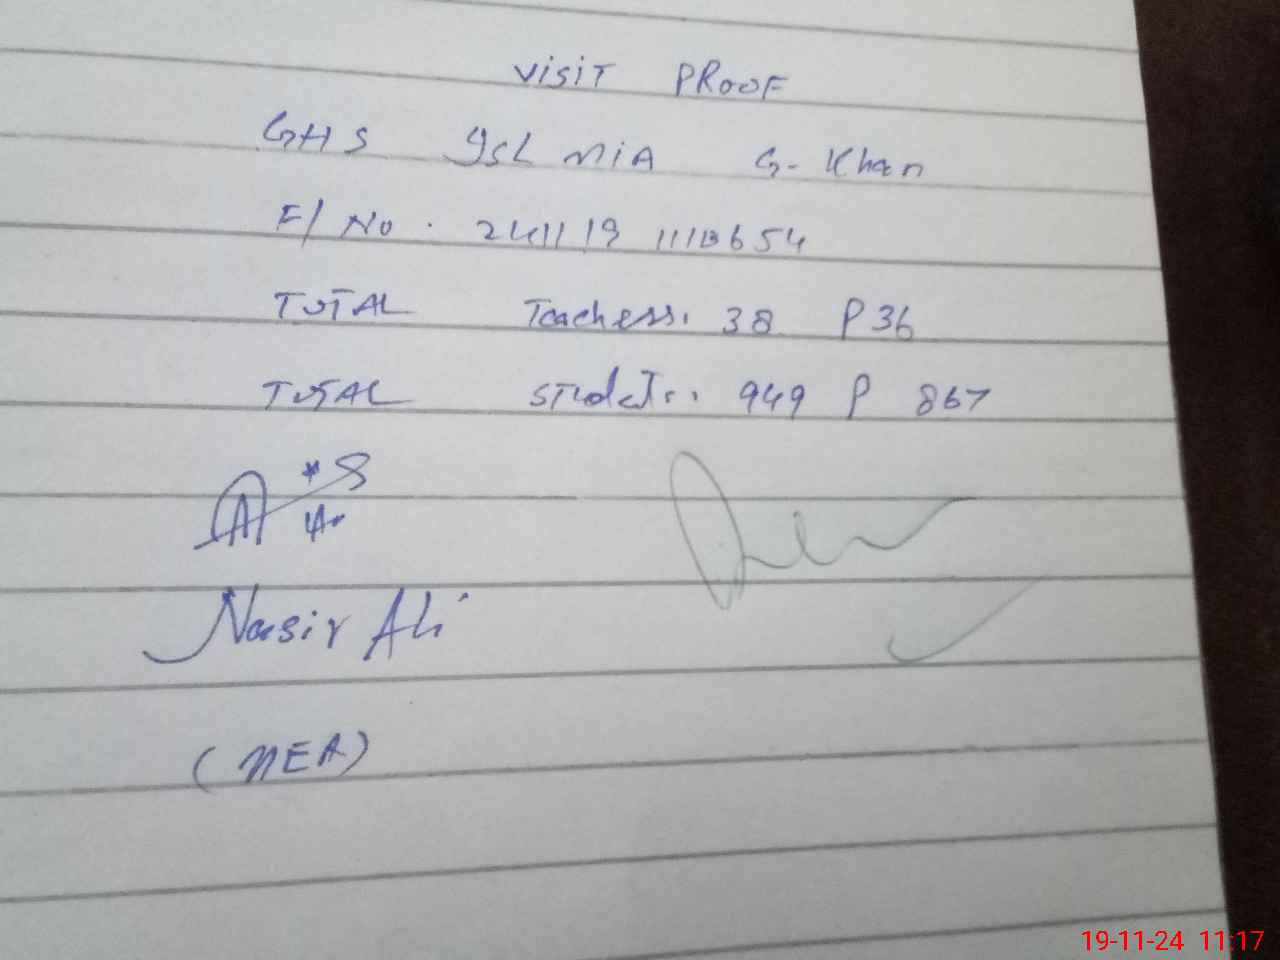 VISIT PROOF
GHS ISLMIA G-Khan
F/No. 241119 111B654
TOTAL Teachess. 38 P 36
TOTAL STUdeTs. 949 P 867
Nasir Ali
(MEA)
19-11-24 11:17